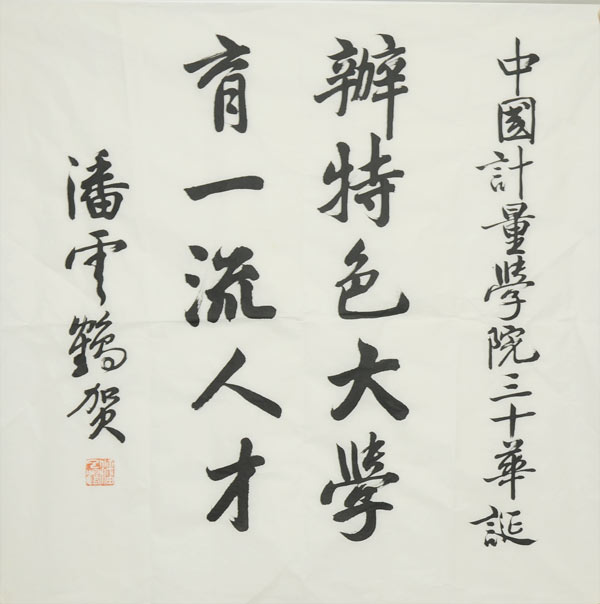 中國計量學院三十華誕
辦特色大學
育一流人才
潘雲鶴贺